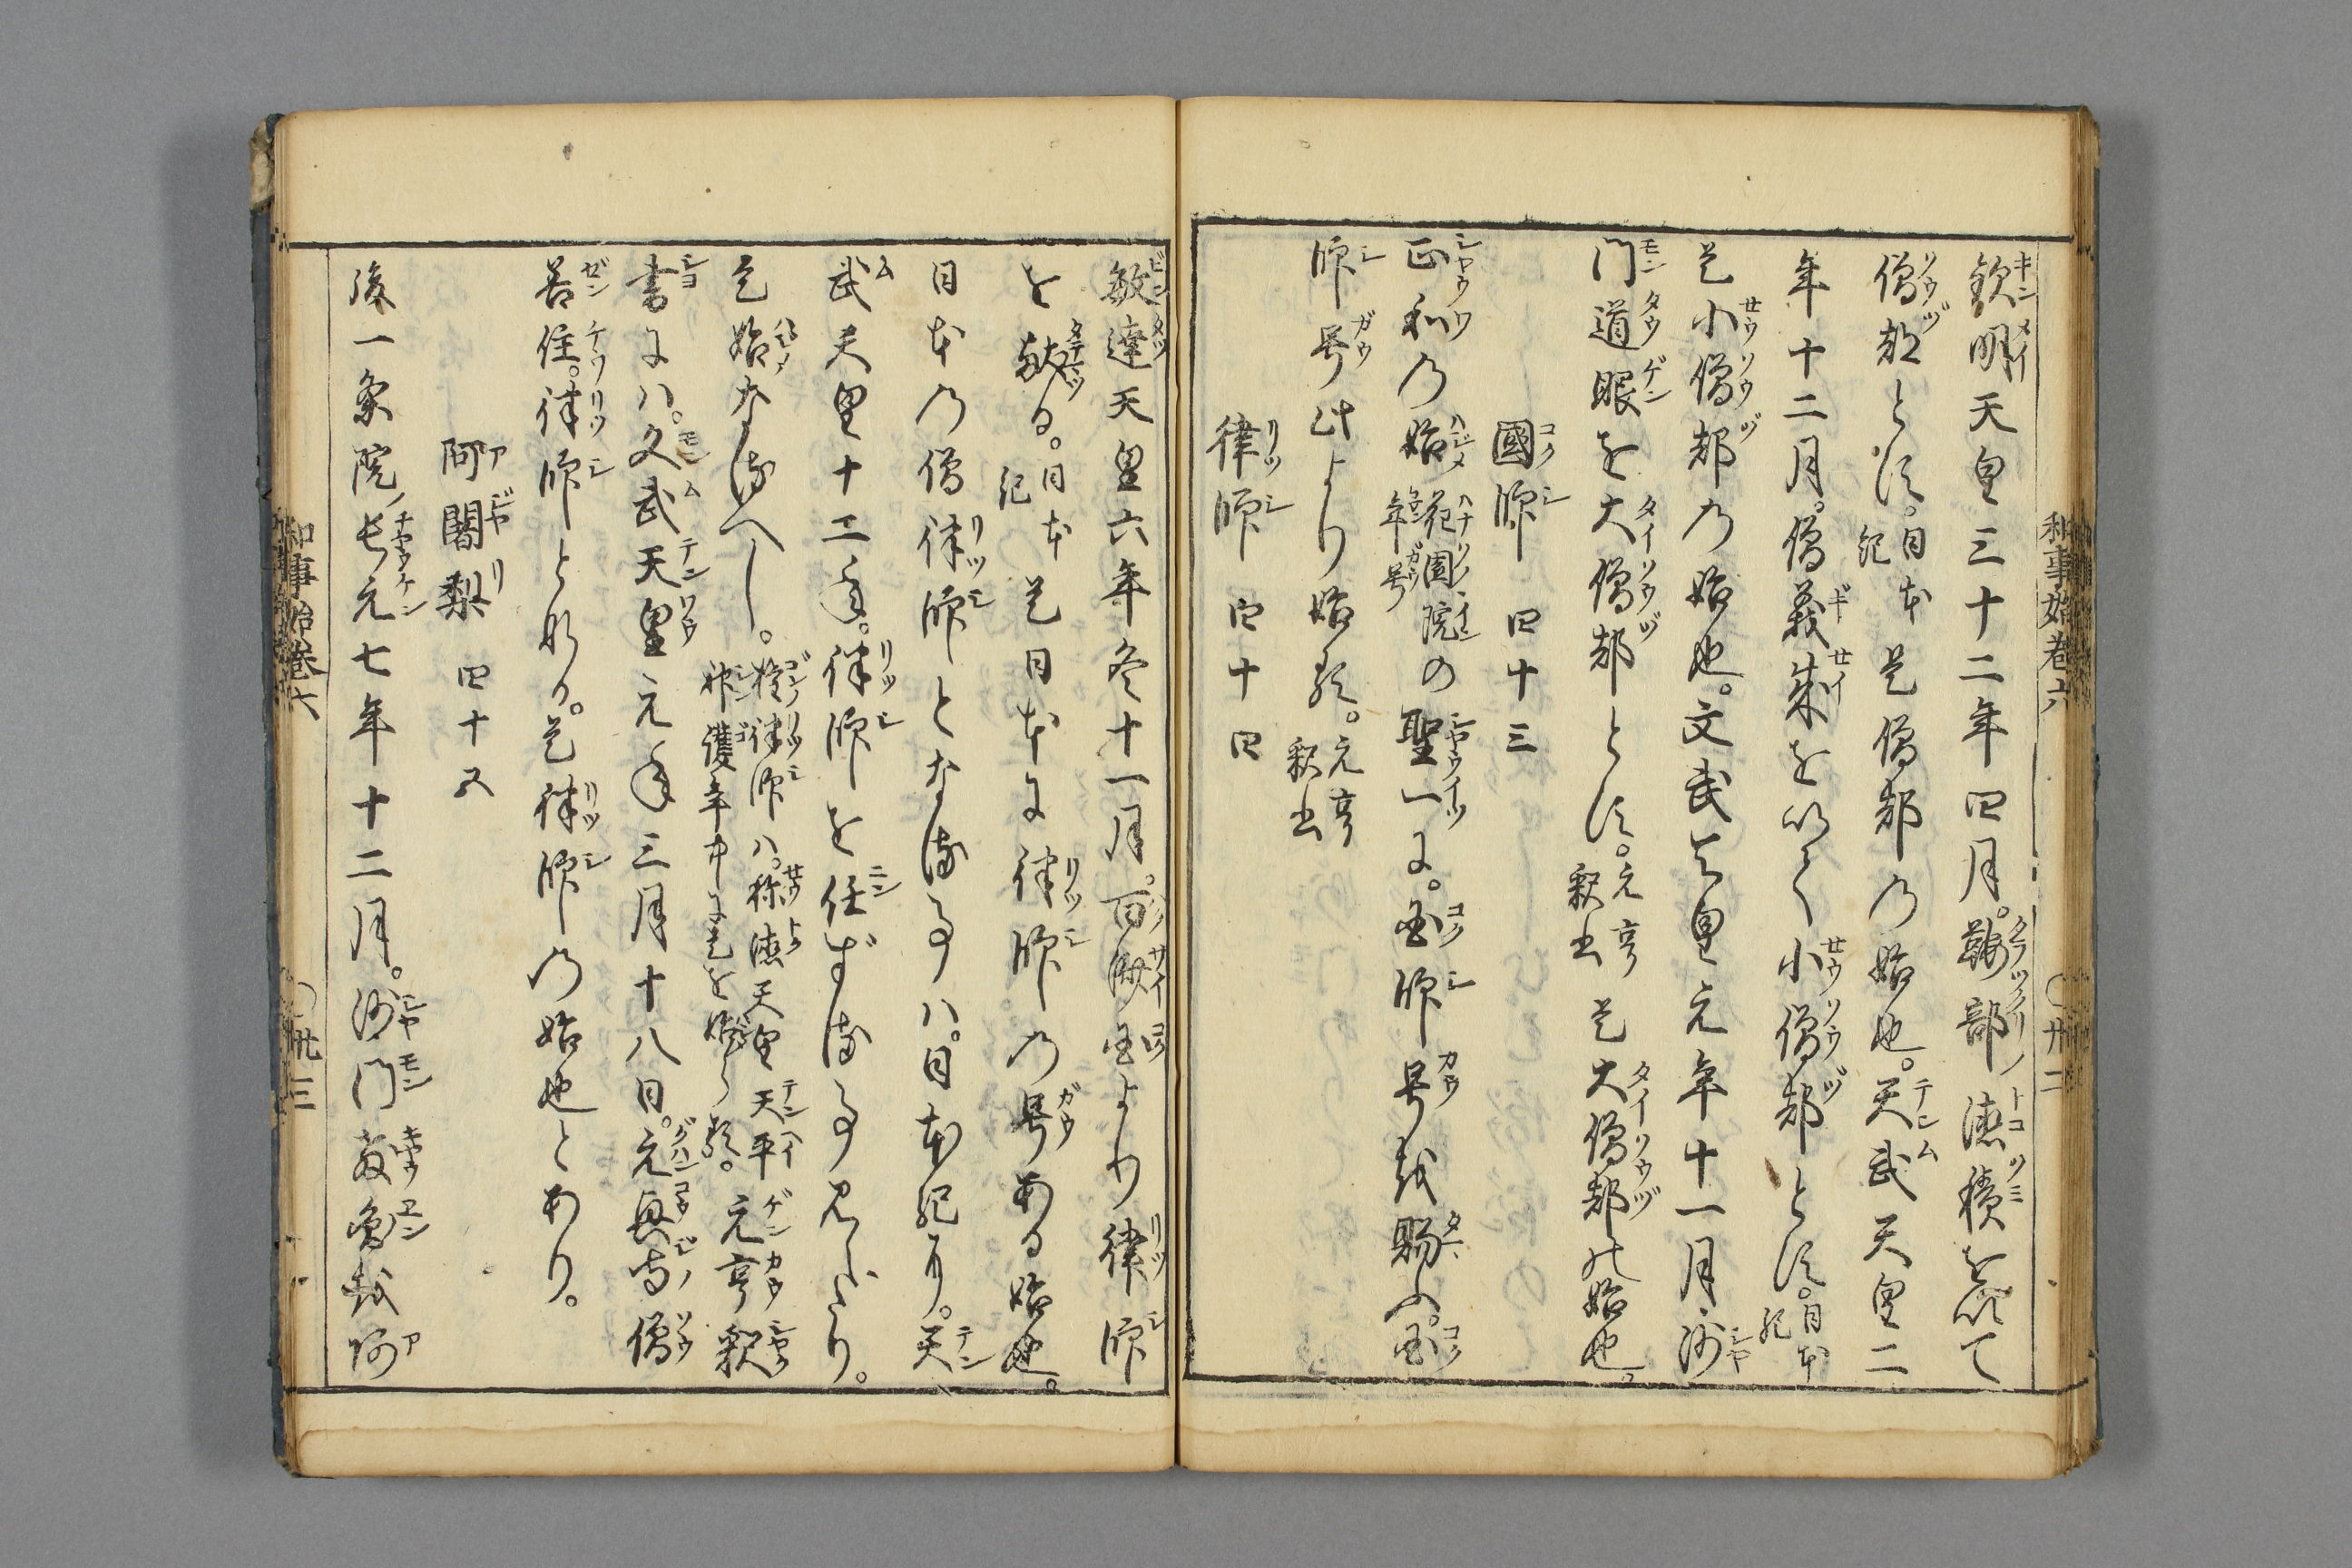 和事始卷六 ○卅二
欽明天皇三十二年四月。鞍部德積を以て
僧都とす。日本紀 是僧都の始也。天武天皇二
年十二月。僧義成を以て小僧都とす。日本紀
是小僧都の始也。文武天皇元年十一月沙
門道眼を大僧都とす。元亨釈書 是大僧都の始也。
國師 四十三
正和の始 花園院年号 の聖一に。国師号を賜ふ。国
師号此より始る。元亨釈書
律師 四十四
敏達天皇六年冬十一月。百済国より律師
を献る。日本紀 是日本に律師の号ある始也。
日本の僧律師となる事ハ。日本紀に。天
武天皇十二年。律師を任ずる事見へたり。
是始なるへし。権律師ハ。称徳天皇天平神護年中に是を始らる。元亨釈
書にハ。文武天皇元年三月十八日。元興寺僧
善住。律師となる。是律師の始也とあり。
阿闍梨 四十五
後一条院ノ長元七年十二月。沙門教円を阿
和事始卷六 ○卅三